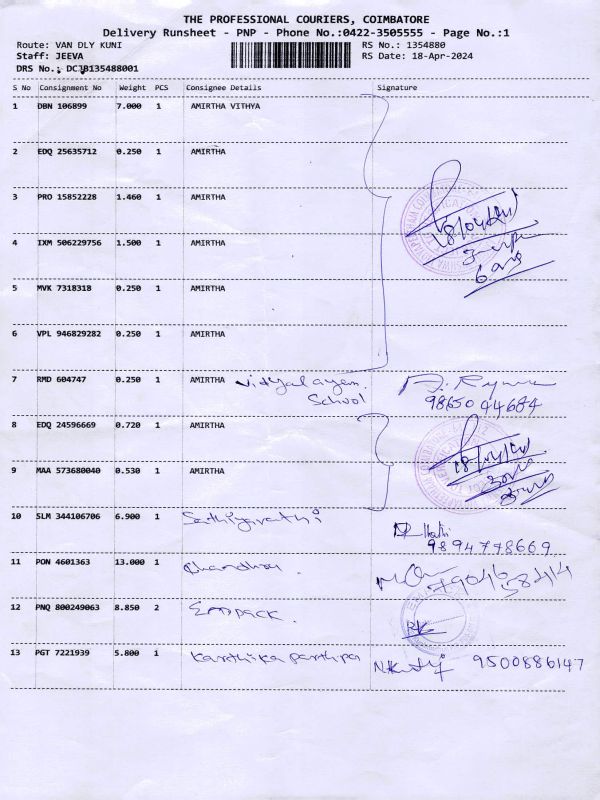 THE PROFESSIONAL COURIERS, COIMBATORE
Delivery Runsheet - PNP - Phone No.:0422-3505555 - Page No.:1
Route: VAN DLY KUNI RS No.: 1354880
Staff: JEEVA RS Date: 18-Apr-2024
DRS No.: DCJB135488001
S No Consignment No Weight PCS Consignee Details Signature
1 DBN 106899 7.000 1 AMIRTHA VITHYA
2 EDQ 25635712 0.250 1 AMIRTHA
3 PRO 15852228 1.460 1 AMIRTHA
18/04/24
4 IXM 506229756 1.500 1 AMIRTHA
5 MVK 7318318 0.250 1 AMIRTHA
6 VPL 946829282 0.250 1 AMIRTHA
7 RMD 604747 0.250 1 AMIRTHA Vidyalayam
School 9865044684
8 EDQ 24596669 0.720 1 AMIRTHA
18/04/24
9 MAA 573680040 0.530 1 AMIRTHA
10 SLM 344106706 6.900 1 Sathiyavathi
9894778669
11 PON 4601363 13.000 1
12 PNQ 800249063 8.850 2 Empack.
RK
13 PGT 7221939 5.800 1 Karthika parthpa 9500886147